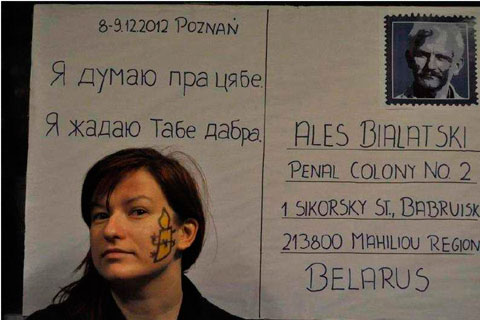 8-9.12.2012 POZNAŃ
Я думаю пра цябе.
Я жадаю табе дабра.
ALES BIALATSKI
PENAL COLONY NO. 2
1 SIKORSKY ST., BABRUISK
213800 MAHILIOU REGION
BELARUS